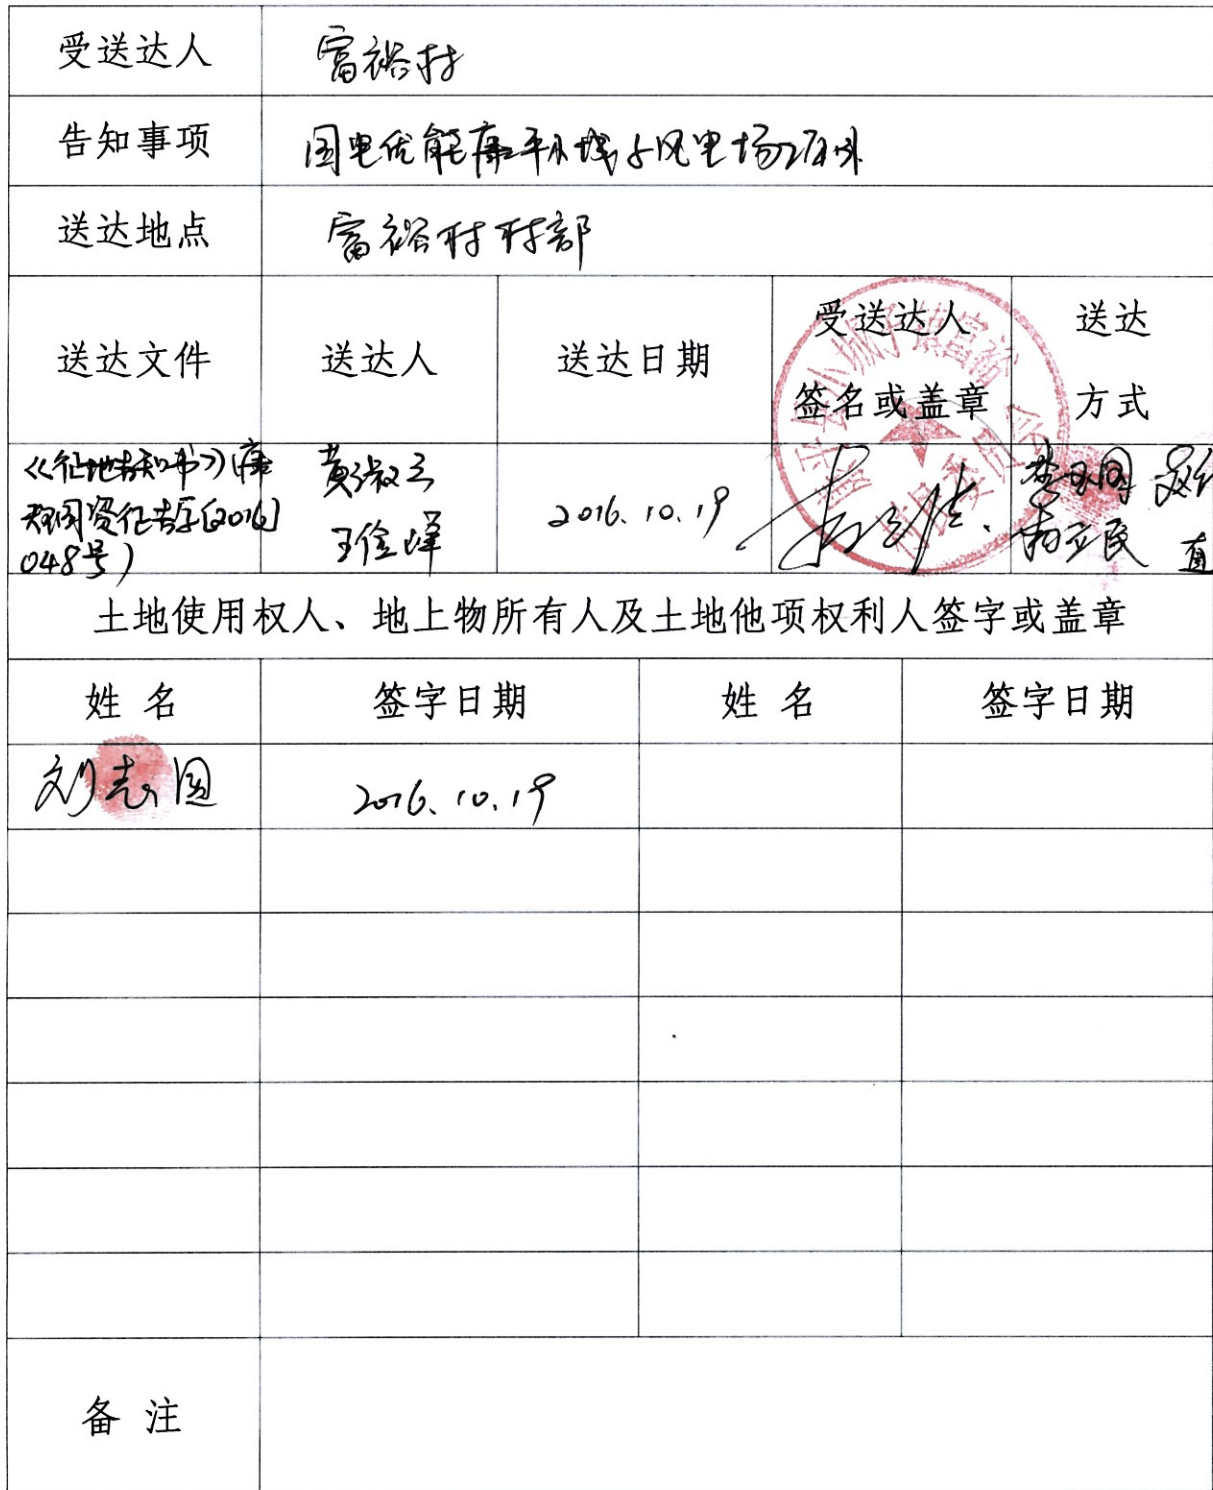 受送达人 富裕村
告知事项 国电优能康平小城子风电场项目
送达地点 富裕村村部
送达文件 送达人 送达日期 受送达人签名或盖章 送达方式
《征地告知书》(康
国资征告字[2016]
048号) 黄淑云
王俭峰 2016.10.19
土地使用权人、地上物所有人及土地他项权利人签字或盖章
姓名 签字日期 姓名 签字日期
刘志国 2016.10.19
备注